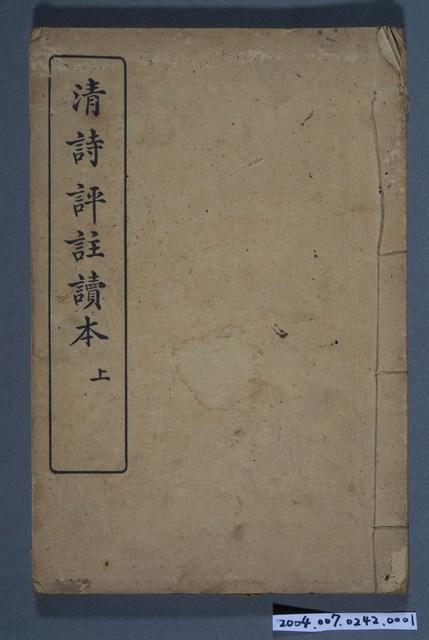 清詩評註讀本
上
2004.007.0242.0001